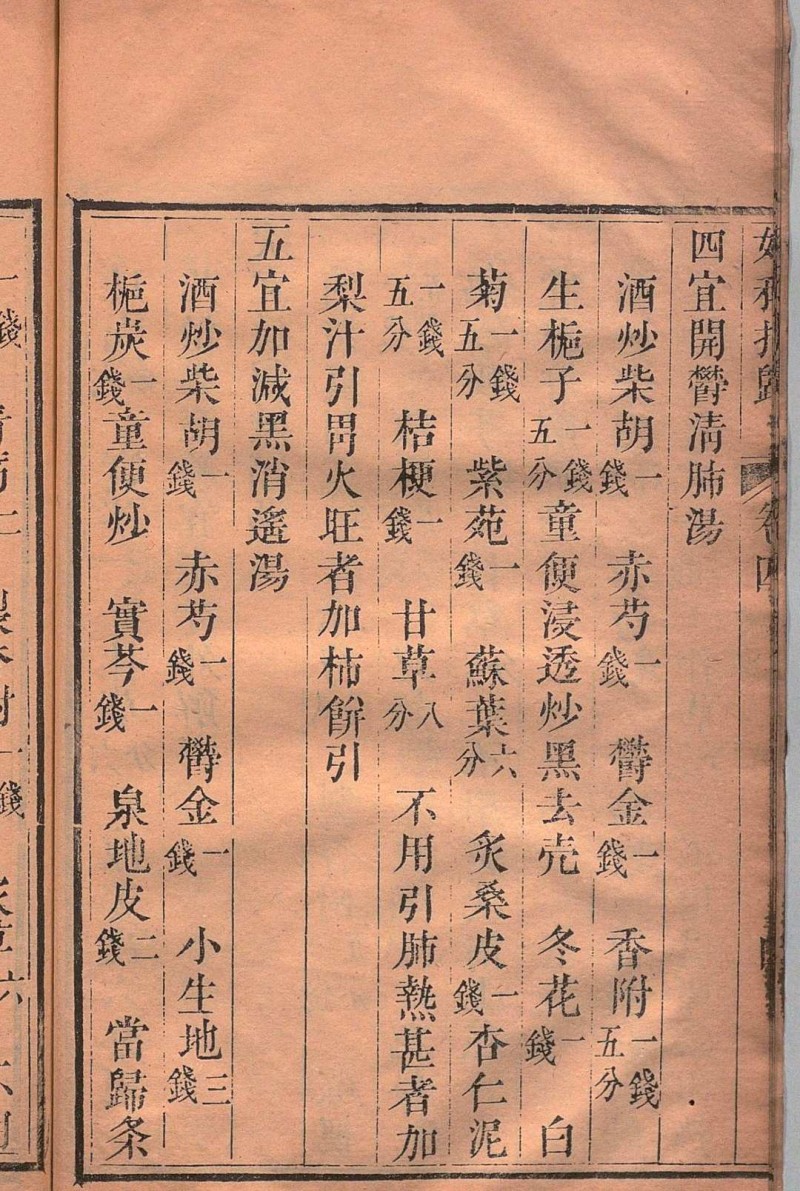 女科指歸 卷四
四宜開鬱清肺湯
酒炒柴胡一錢 赤芍一錢 鬱金一錢 香附一錢五分
生梔子一錢五分童便浸透炒黑去壳 冬花一錢 白
菊一錢五分 紫苑一錢 蘇葉六分 炙桑皮一錢杏仁泥
一錢五分 桔梗一錢 甘草八分 不用引肺熱甚者加
梨汁引胃火旺者加柿餅引
五宜加減黑消遙湯
酒炒柴胡一錢 赤芍一錢 鬱金一錢 小生地三錢
梔炭一錢童便炒 實芩一錢 泉地皮二錢 當歸条